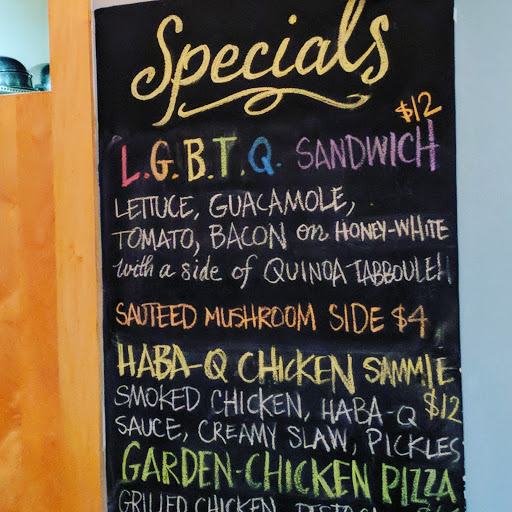 Specials
$12
L.G.B.T.Q. SANDWICH
LETTUCE, GUACAMOLE,
TOMATO, BACON on HONEY-WHITE
with a side of QUINOA TABBOULEH
SAUTEED MUSHROOM SIDE $4
HABA-Q CHICKEN SAMMIE
SMOKED CHICKEN, HABA-Q $12
SAUCE, CREAMY SLAW, PICKLES
GARDEN-CHICKEN PIZZA
GRILLED CHICKEN